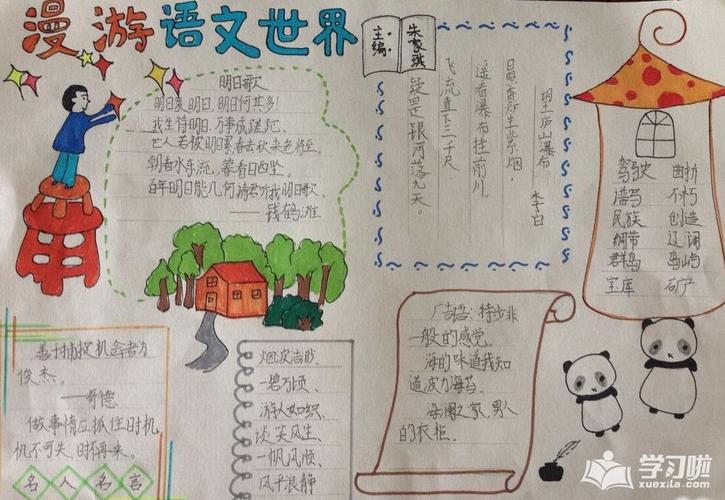 漫游语文世界
主编:
朱家琪
明日歌
明日复明日,明日何其多!
我生待明日,万事成蹉跎。
世人若被明日累,春去秋来老将至。
朝看水东流,暮看日西坠。
百年明日能几何,请君听我明日歌。
——钱鹤滩
望庐山瀑布
李白
日照香炉生紫烟,
遥看瀑布挂前川。
飞流直下三千尺
疑是银河落九天。
驾驶 曲折
谱写 不朽
民族 创造
绸带 辽阔
群岛 岛屿
宝库 矿产
善于捕捉机会者为
俊杰。
——哥德
做事情应抓住时机,
机不可失,时不再来。
名人名言
烟波浩渺、
一碧万顷、
游人如织、
谈笑风生、
一帆风顺、
风平浪静
广告语:特步非
一般的感觉。
海的味道我知
道波力海苔。
海澜之家,男人
的衣柜。
学习啦
xuexila.com